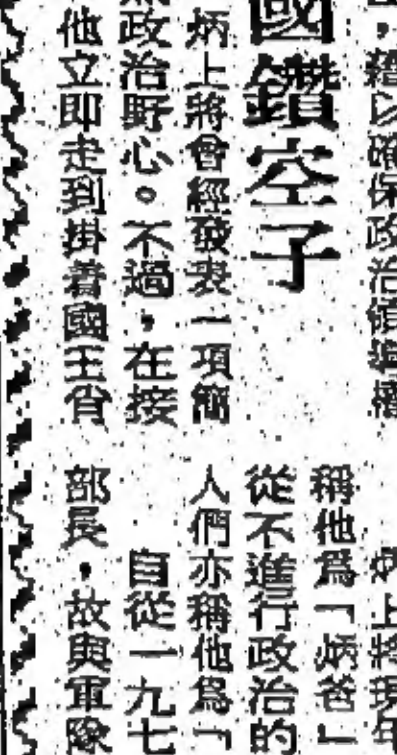 ，藉以確保政治領導權
國鑽空子
炳上將曾經發表一項簡
政治野心。不過，在接
他立即走到掛着國王肖
炳上將現年
稱他爲「炳爸」
從不進行政治的
人們亦稱他爲「
自從一九七
部長，故與軍隊